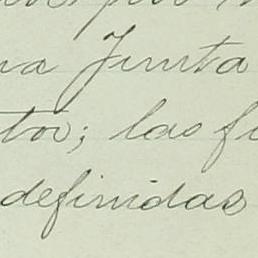 na Junta
tor; las fi
definidas